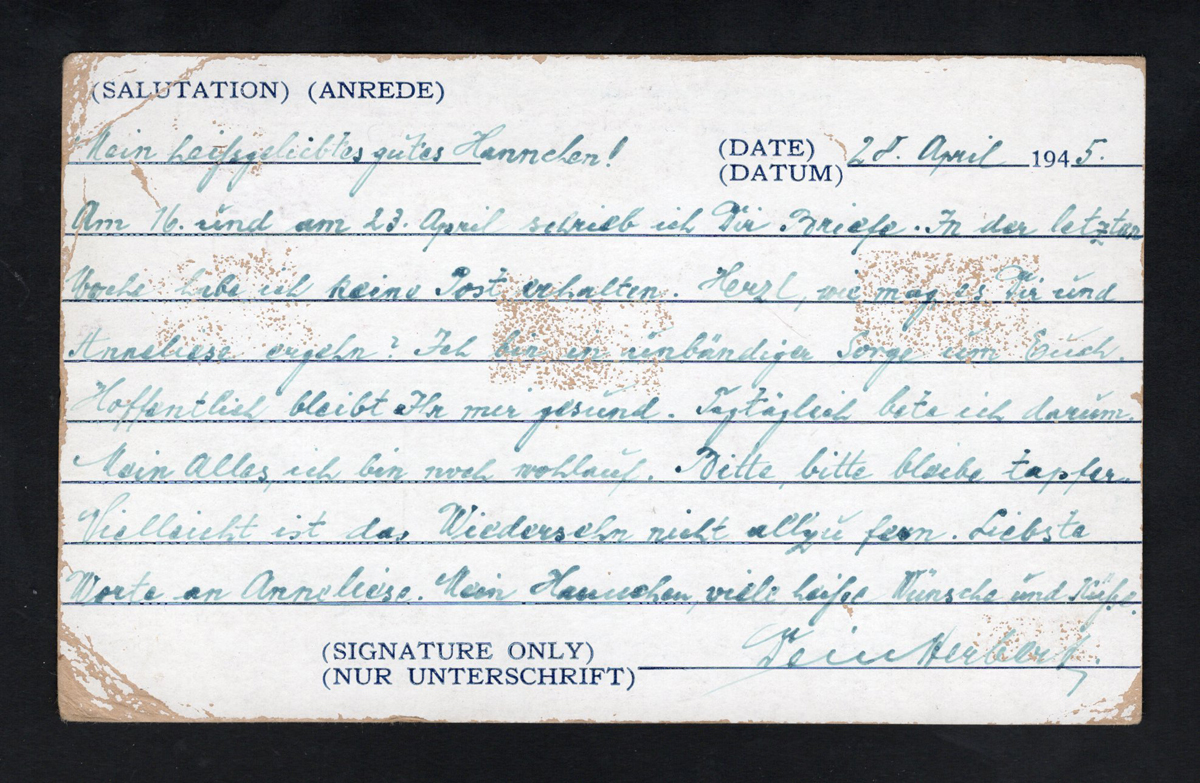 (SALUTATION) (ANREDE)
Mein heißgeliebtes gutes Hannchen!
(DATE) 28. April 1945.
(DATUM)
Am 16. und am 23. April schrieb ich Dir Briefe. In der letzten
Woche habe ich keine Post erhalten. Herzl, wie mag es Dir und
Anneliese ergehn? Ich bin in unbändiger Sorge um Euch.
Hoffentlich bleibt Ihr mir gesund. Tagtäglich bete ich darum.
Mein Alles, ich bin noch wohlauf. Bitte, bitte bleibe tapfer.
Vielleicht ist das Wiedersehn nicht allzu fern. Liebste
Worte an Anneliese. Mein Hannchen, viele heiße Wünsche und Küße.
(SIGNATURE ONLY)
(NUR UNTERSCHRIFT)
Dein Herbert.